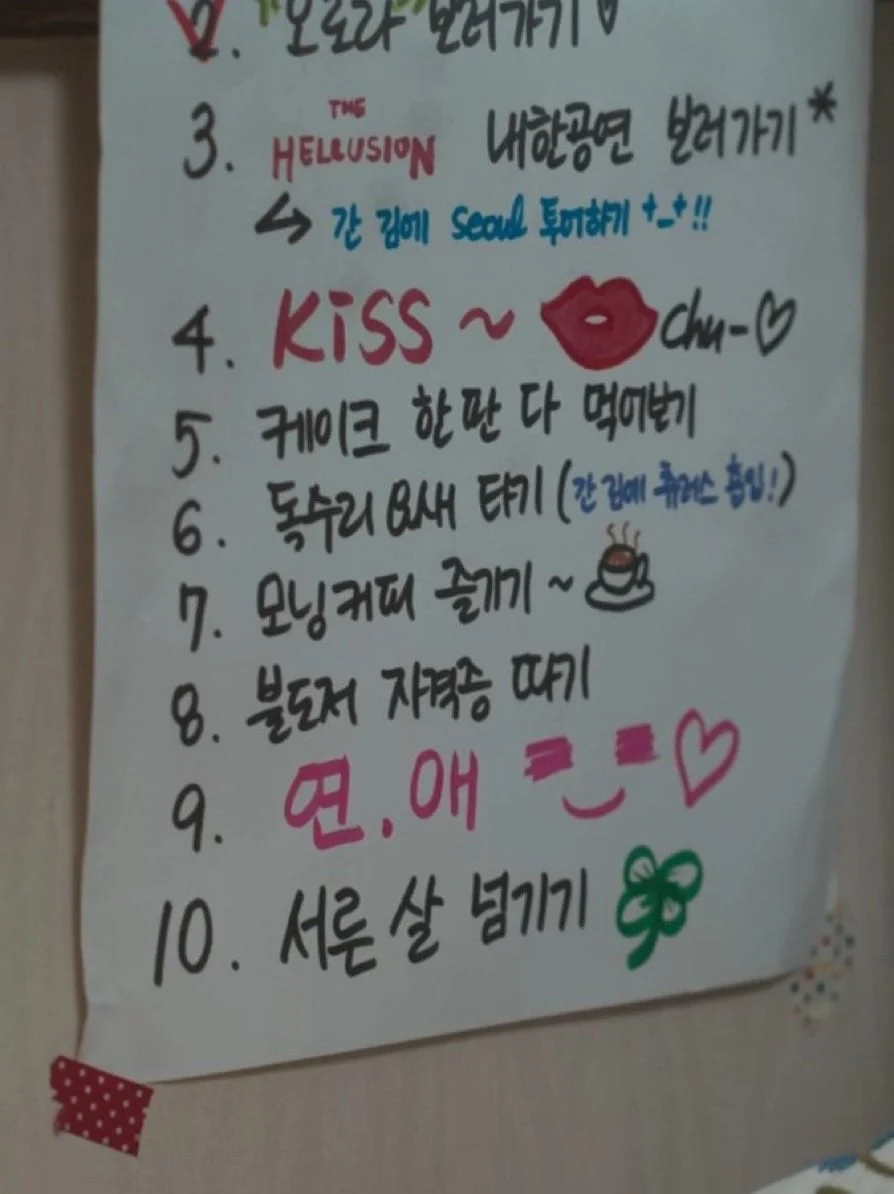 2. "오로라" 보러가기♡
3. THE HELLUSION 내한공연 보러가기*
↪ 간 김에 Seoul 투어하기 +_+!!
4. KiSS ~ chu-♡
5. 케이크 한 판 다 먹어보기
6. 독수리 요새 타기 (간 김에 츄러스 흡입!)
7. 모닝커피 즐기기~
8. 불도저 자격증 따기
9. 연.애 ♡
10. 서른 살 넘기기